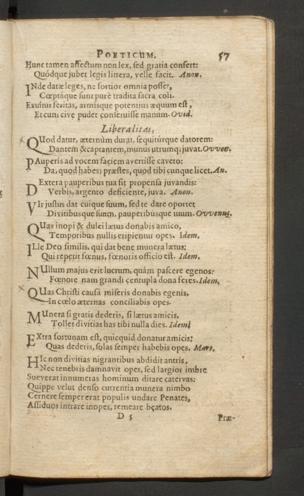 POETICUM. 57
Hunc tamen affectum non lex, sed gratia confert:
Quodque jubet legis littera, velle facit. Anon.
INde datæ leges, ne fortior omnia posset,
Cœptáque sunt purè tradita sacra coli.
Exuitur feritas, armisque potentius æquum est,
Et cum cive pudet conseruisse manum. Ovid.
Liberalitas,
QUod datur, æternùm durat, sequitúrque datorem:
Dantem & captantem, munus utrumq; juvat. Ovven.
PAuperis ad vocem faciem avertisse caveto:
Da, quod habes; præstes, quod tibi cunque licet. An.
DExtera pauperibus tua sit propensa juvandis:
Verbis, argento deficiente, juva. Anon.
VIr justus dat cuique suum, sed te dare oportet
Divitibusque suum, pauperibusque tuum. Ovvenus.
QUas inopi & dulci lætus donabis amico,
Temporibus nullis eripientur opes. Idem.
ILle Deo similis, qui dat bene munera lætus;
Qui repetit fœnus, fœnoris officio est. Idem.
NUllum majus erit lucrum, quàm pascere egenos:
Fœnore nam grandi centupla dona feres. Idem,
QUas Christi causâ miseris donabis egenis,
In cœlo æternas conciliabis opes.
MUnera si gratis dederis, si lætus amicis,
Tollet divitias has tibi nulla dies. Idem.
EXtra fortunam est, quicquid donatur amicis:
Quas dederis, solas semper habebis opes. Mart.
HIc non divitias nigrantibus abdidit antris,
Nec tenebris damnavit opes, sed largior imbre
Sueverat innumeras hominum ditare catervas:
Quippe velut denso currentia munera nimbo
Cernere semper erat populis undare Penates,
Assiduos intrare inopes, remeare beatos.
D 5 Præ-